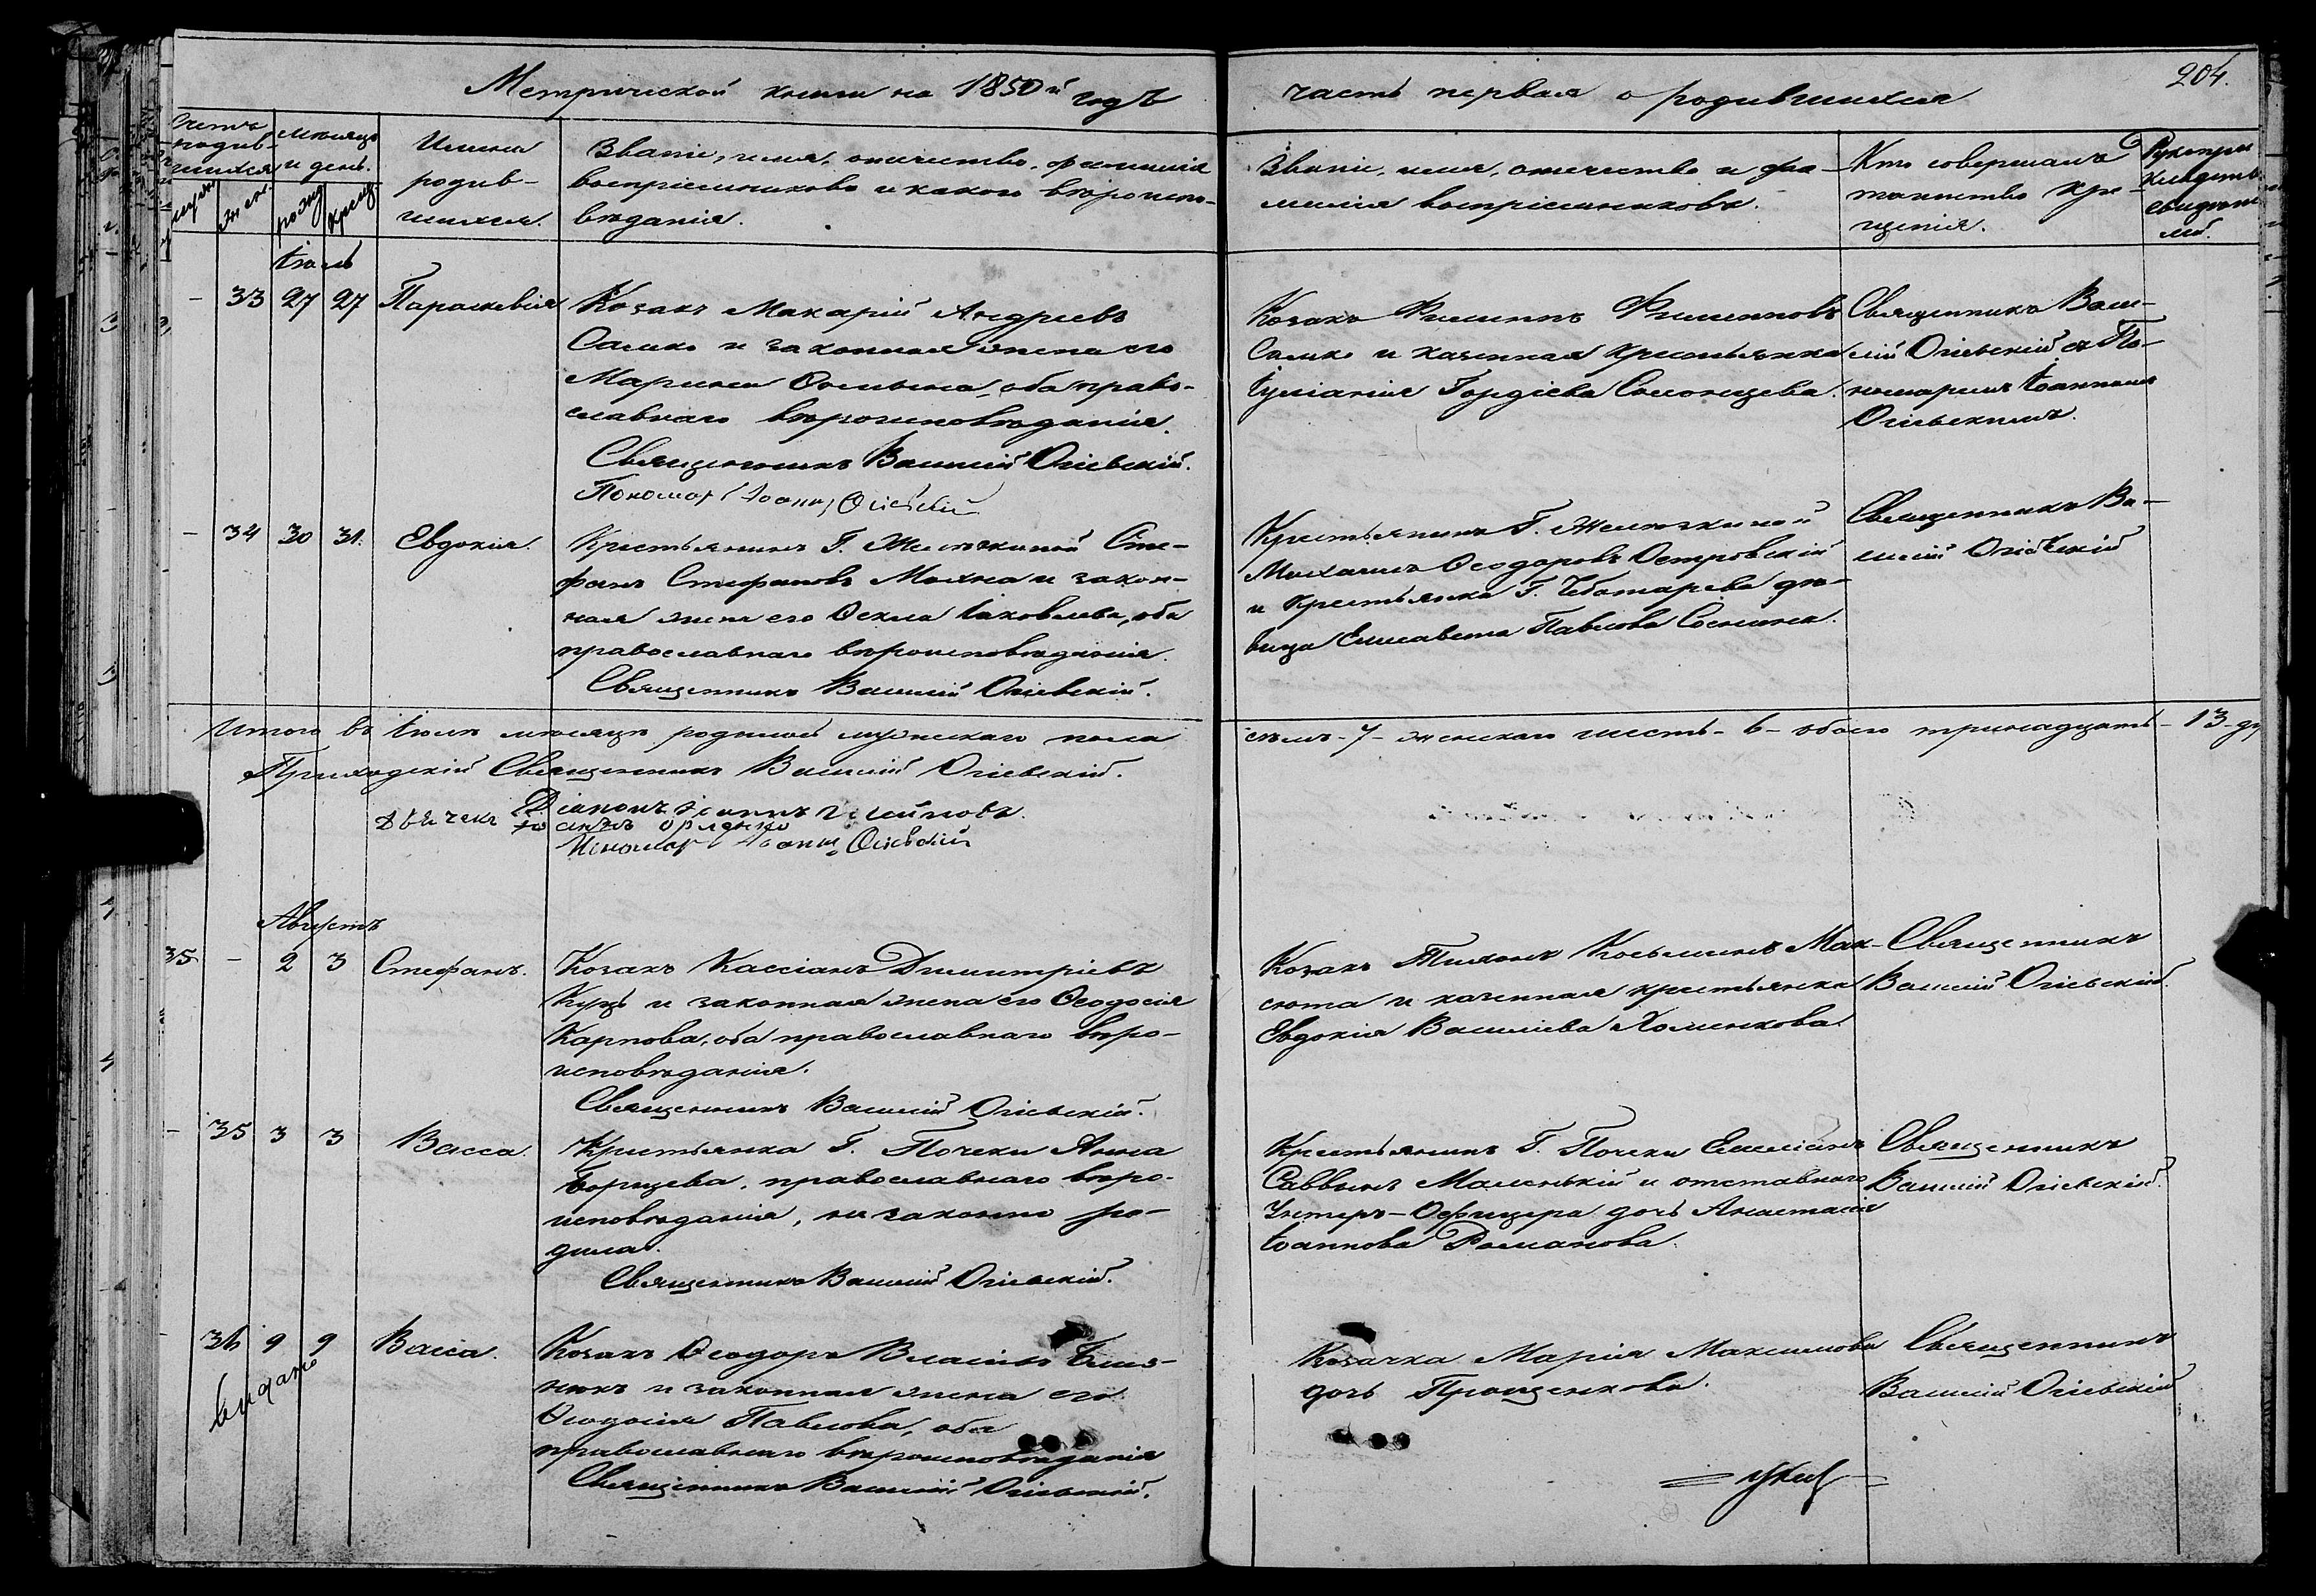 Метрической книги на 1850й годъ
часть первая о родившихся
204.
Счетъ родив-
шихся
мѣсяцъ
и день.
муж
жен.
рожд
крещ
Имена
родив-
шихся.
Званіе, имя, отечество, фамилія
воспріемниковъ и какого вѣроиспо-
вѣданія.
Званіе, имя, отечество и фа-
милія воспріемниковъ.
Кто совершалъ
таинство кре
щенія.
Іюль
- 33 27 27 Параскевія
Козакъ Макарій Андреевъ
Салико и законная жена его
Марина Осипова, оба право-
славнаго вѣроисповѣданія.
Священникъ Василій Огіевскій.
Пономарь Іоаннъ Огіевскій
Козакъ Филиппъ Филипповъ
Салико и казенная крестьянка
Іуліанія Гордіева Солонцева.
Священникъ Васи-
лій Огіевскій съ По-
номаремъ Іоанномъ
Огіевскимъ.
- 34 30 31. Евдокія.
Крестьянинъ Г. Желточкиной Сте-
фанъ Стефановъ Махна и закон-
ная жена его Ѳекла Іаковлева, оба
православнаго вѣроисповѣданія.
Священникъ Василій Огіевскій.
Крестьянинъ Г. Желточкиной
Михаилъ Ѳеодоровъ Островскій
и крестьянка Г. Чеботарева дѣ-
вица Елисавета Павлова Соснина.
Священникъ Ва-
силій Огіевскій
Итого въ Іюлѣ мѣсяцѣ родилось мужескаго пола
семь - 7 - женскаго шесть - 6 - обоего тринадцать - 13 - ду
Приходскій Священникъ Василій Огіевскій.
Діаконъ Іоаннъ
Дьячекъ
Пономарь Іоаннъ Огіевскій
Августъ
35 - 2 3 Стефанъ.
Козакъ Кассіанъ Димитріевъ
Куцъ и законная жена его Ѳеодосія
Карпова, оба православнаго вѣро-
исповѣданія.
Священникъ Василій Огіевскій.
Козакъ Тихонъ Косьминъ Мак-
сюта и казенная крестьянка
Евдокія Василіева Хоменкова.
Священникъ
Василій Огіевскій.
- 35 3 3 Васса.
Крестьянка Г. Почеки Анна
Борщева, православнаго вѣро-
исповѣданія, незаконно ро-
дила.
Священникъ Василій Огіевскій.
Крестьянинъ Г. Почеки Емиліанъ
Саввинъ Маленькій и отставнаго
Унтеръ-Офицера дочь Анастасія
Іоаннова Романова.
Священникъ
Василій Огіевскій.
36 9 9 Васса.
видано
Козакъ Ѳеодоръ Власіевъ Близ-
нюкъ и законная жена его
Ѳеодосія Павлова, оба
православнаго вѣроисповѣданія
Священникъ Василій Огіевскій.
Козачка Марія Максимова
дочь Прощенкова.
Священникъ
Василій Огіевскій